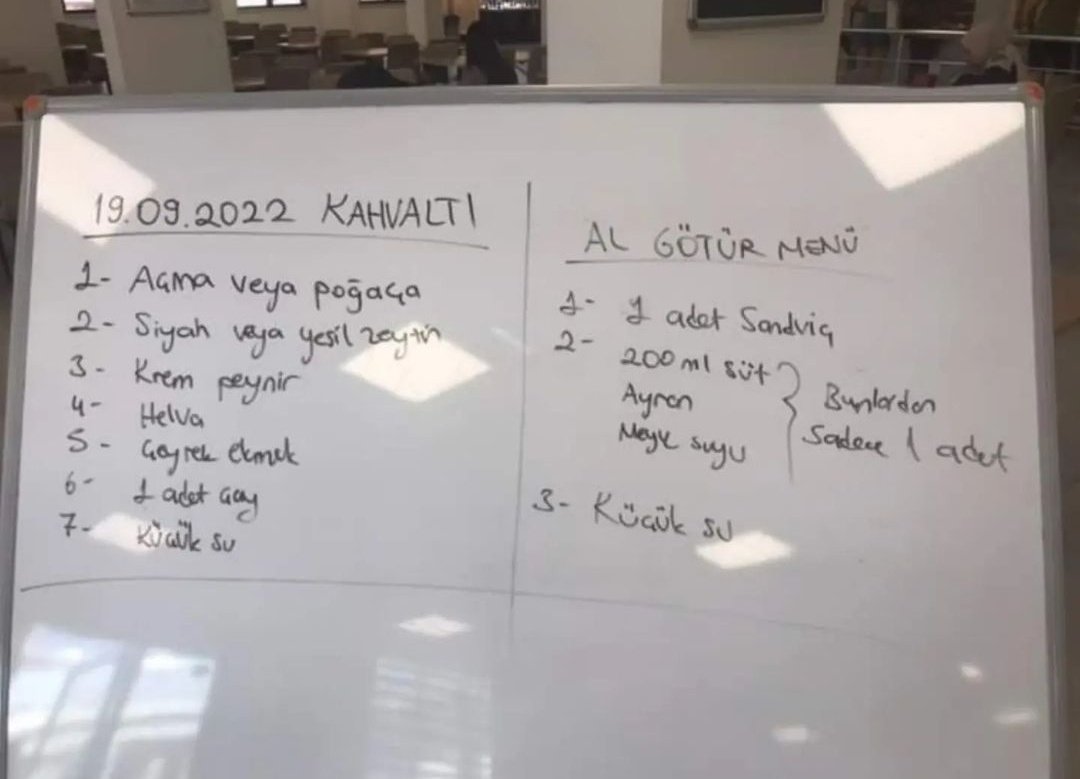 19.09.2022 KAHVALTI
1- Açma veya poğaça
2- Siyah veya yeşil zeytin
3- Krem peynir
4- Helva
5- Çeyrek ekmek
6- 1 adet çay
7- Küçük su
AL GÖTÜR MENÜ
1- 1 adet Sandviç
2- 200 ml süt
Ayran
Meyve suyu
Bunlardan
Sadece 1 adet
3- Küçük su